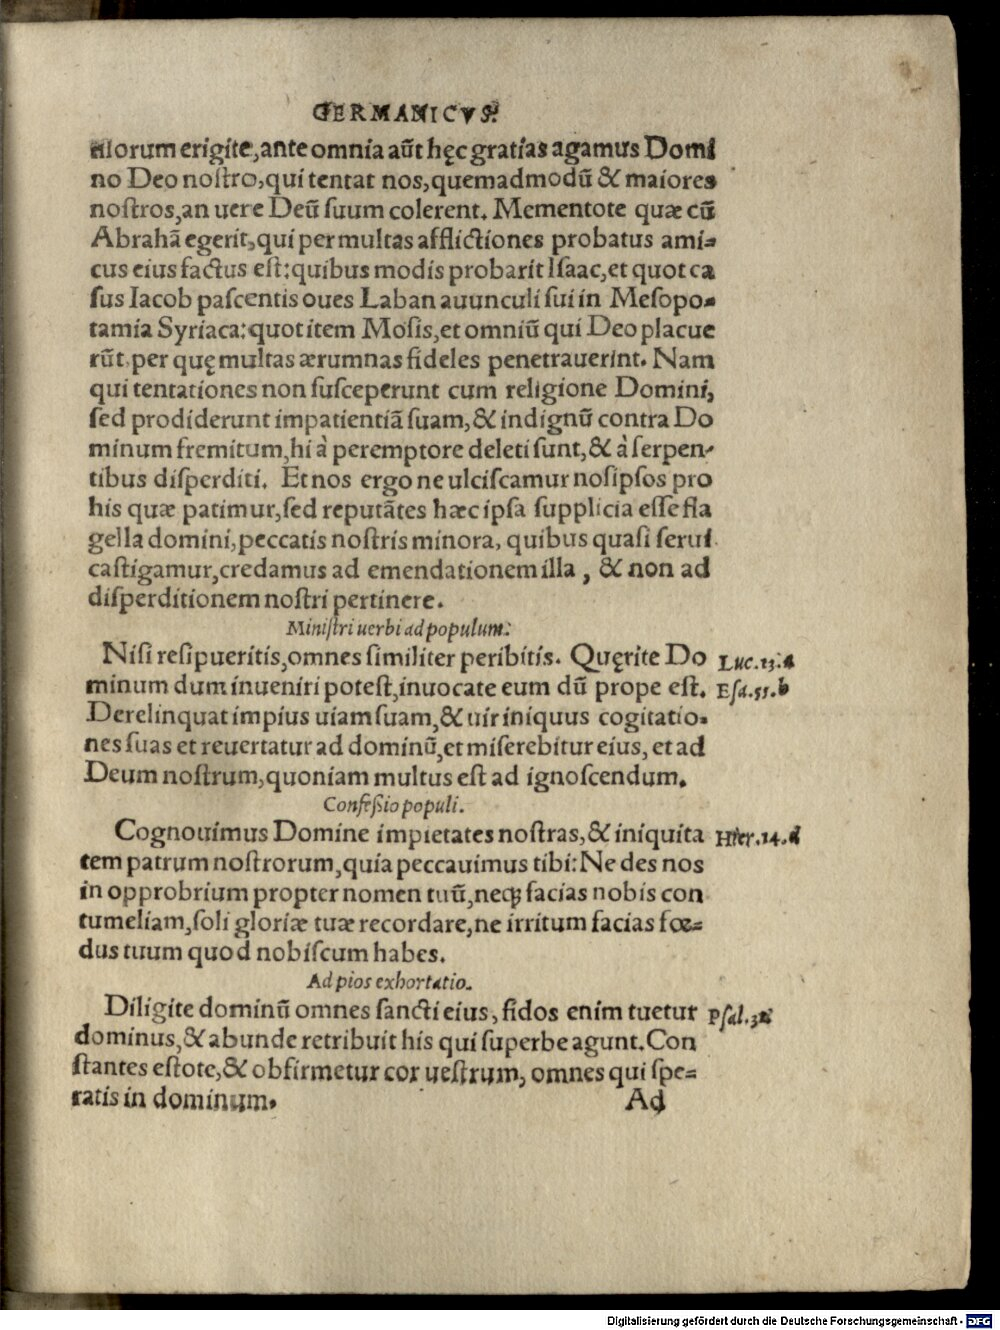 GERMANICVS.
illorum erigite, ante omnia aũt hęc gratias agamus Domi
no Deo noſtro, qui tentat nos, quemadmodũ & maiores
noſtros, an uere Deũ ſuum colerent. Mementote quæ cũ
Abrahã egerit, qui per multas afflictiones probatus ami-
cus eius factus eſt: quibus modis probarit Iſaac, et quot ca
ſus Iacob paſcentis oues Laban auunculi ſui in Meſopo-
tamia Syriaca: quot item Moſis, et omniũ qui Deo placue
rũt, per quę multas ærumnas fideles penetrauerint. Nam
qui tentationes non ſuſceperunt cum religione Domini,
ſed prodiderunt impatientiã ſuam, & indignũ contra Do
minum fremitum, hi à peremptore deleti ſunt, & à ſerpen-
tibus diſperditi. Et nos ergo ne ulciſcamur noſipſos pro
his quæ patimur, ſed reputãtes hæc ipſa ſupplicia eſſe fla
gella domini, peccatis noſtris minora, quibus quaſi ſerui
caſtigamur, credamus ad emendationem illa, & non ad
diſperditionem noſtri pertinere.
Miniſtri uerbi ad populum.
Niſi reſipueritis, omnes ſimiliter peribitis. Quęrite Do Luc.13.a
minum dum inueniri poteſt, inuocate eum dũ prope eſt. Eſa.55.b
Derelinquat impius uiam ſuam, & uir iniquus cogitatio-
nes ſuas et reuertatur ad dominũ, et miſerebitur eius, et ad
Deum noſtrum, quoniam multus eſt ad ignoſcendum.
Confeßio populi.
Cognouimus Domine impietates noſtras, & iniquita Hier.14.d
tem patrum noſtrorum, quia peccauimus tibi: Ne des nos
in opprobrium propter nomen tuũ, neq; facias nobis con
tumeliam, ſoli gloriæ tuæ recordare, ne irritum facias fœ-
dus tuum quod nobiſcum habes.
Ad pios exhortatio.
Diligite dominũ omnes ſancti eius, fidos enim tuetur Pſal.
dominus, & abunde retribuit his qui ſuperbe agunt. Con
ſtantes eſtote, & obfirmetur cor ueſtrum, omnes qui ſpe-
ratis in dominum. Ad
Digitalisierung gefördert durch die Deutsche Forschungsgemeinschaft - DFG